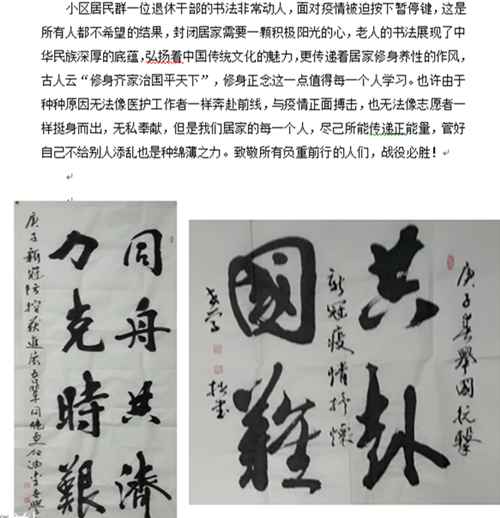 小区居民群一位退休干部的书法非常动人，面对疫情被迫按下暂停键，这是
所有人都不希望的结果，封闭居家需要一颗积极阳光的心，老人的书法展现了中
华民族深厚的底蕴，弘扬着中国传统文化的魅力，更传递着居家修身养性的作风，
古人云“修身齐家治国平天下”，修身正念这一点值得每一个人学习。也许由于
种种原因无法像医护工作者一样奔赴前线，与疫情正面搏击，也无法像志愿者一
样挺身而出，无私奉献，但是我们居家的每一个人，尽己所能传递正能量，管好
自己不给别人添乱也是种绵薄之力。致敬所有负重前行的人们，战役必胜！
同舟共济
力克时艱
庚子新冠防控获進展吾輩同胞更加油
庚子春舉國抗擊
共赴
新冠疫情抒懷
國難